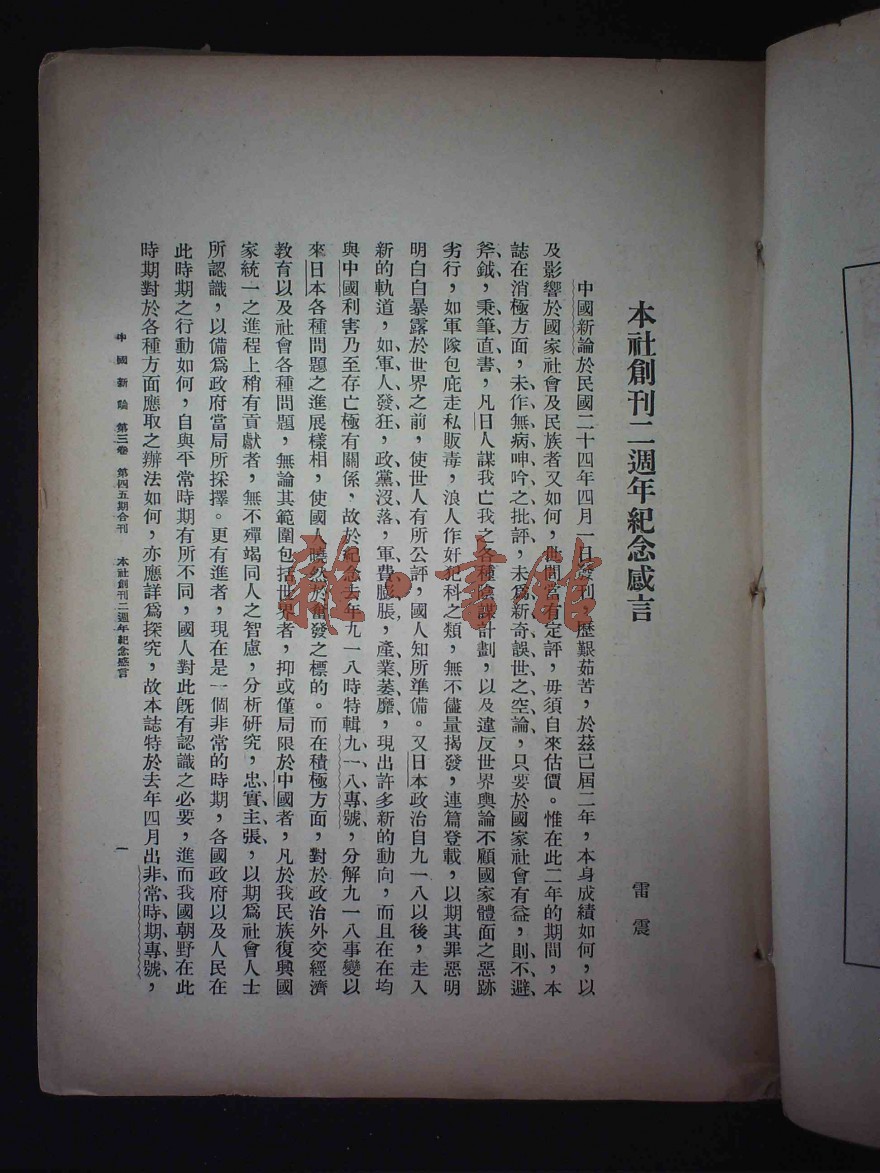 本社創刊二週年紀念感言
雷震
中國新論於民國二十四年四月一日發刊，歷艱茹苦，於茲已屆二年，本身成績如何，以
及影響於國家社會及民族者又如何，世間當有定評，毋須自來估價。惟在此二年的期間，本
誌在消極方面，未作無病呻吟之批評，未為新奇誤世之空論，只要於國家社會有益，則不避
斧鉞，秉筆直書，凡日人謀我亡我之各種陰謀計劃，以及違反世界輿論不顧國家體面之惡跡
劣行，如軍隊包庇走私販毒，浪人作奸犯科之類，無不儘量揭發，連篇登載，以期其罪惡明
明白白暴露於世界之前，使世人有所公評，國人知所準備。又日本政治自九一八以後，走入
新的軌道，如軍人發狂，政黨沒落，軍費膨脹，產業萎靡，現出許多新的動向，而且在在均
與中國利害乃至存亡極有關係，故於紀念去年九一八時特輯九一八專號，分解九一八事變以
來日本各種問題之進展樣相，使國人曉然於奮發之標的。而在積極方面，對於政治外交經濟
教育以及社會各種問題，無論其範圍包括世界者，抑或僅局限於中國者，凡於我民族復興國
家統一之進程上稍有貢獻者，無不殫竭同人之智慮，分析研究，忠實主張，以期為社會人士
所認識，以備為政府當局所採擇。更有進者，現在是一個非常的時期，各國政府以及人民在
此時期之行動如何，自與平常時期有所不同，國人對此既有認識之必要，進而我國朝野在此
時期對於各種方面應取之辦法如何，亦應詳為探究，故本誌特於去年四月出非常時期專號，
中國新論 第三卷 第四五期合刊 本社創刊二週年紀念感言 一
雜·書館